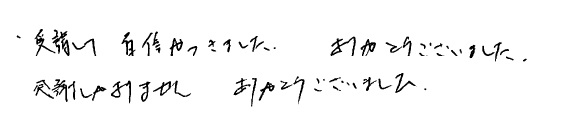 ・受講して 自信がつきました. ありがとうございました.
感謝しかありません ありがとうございました.